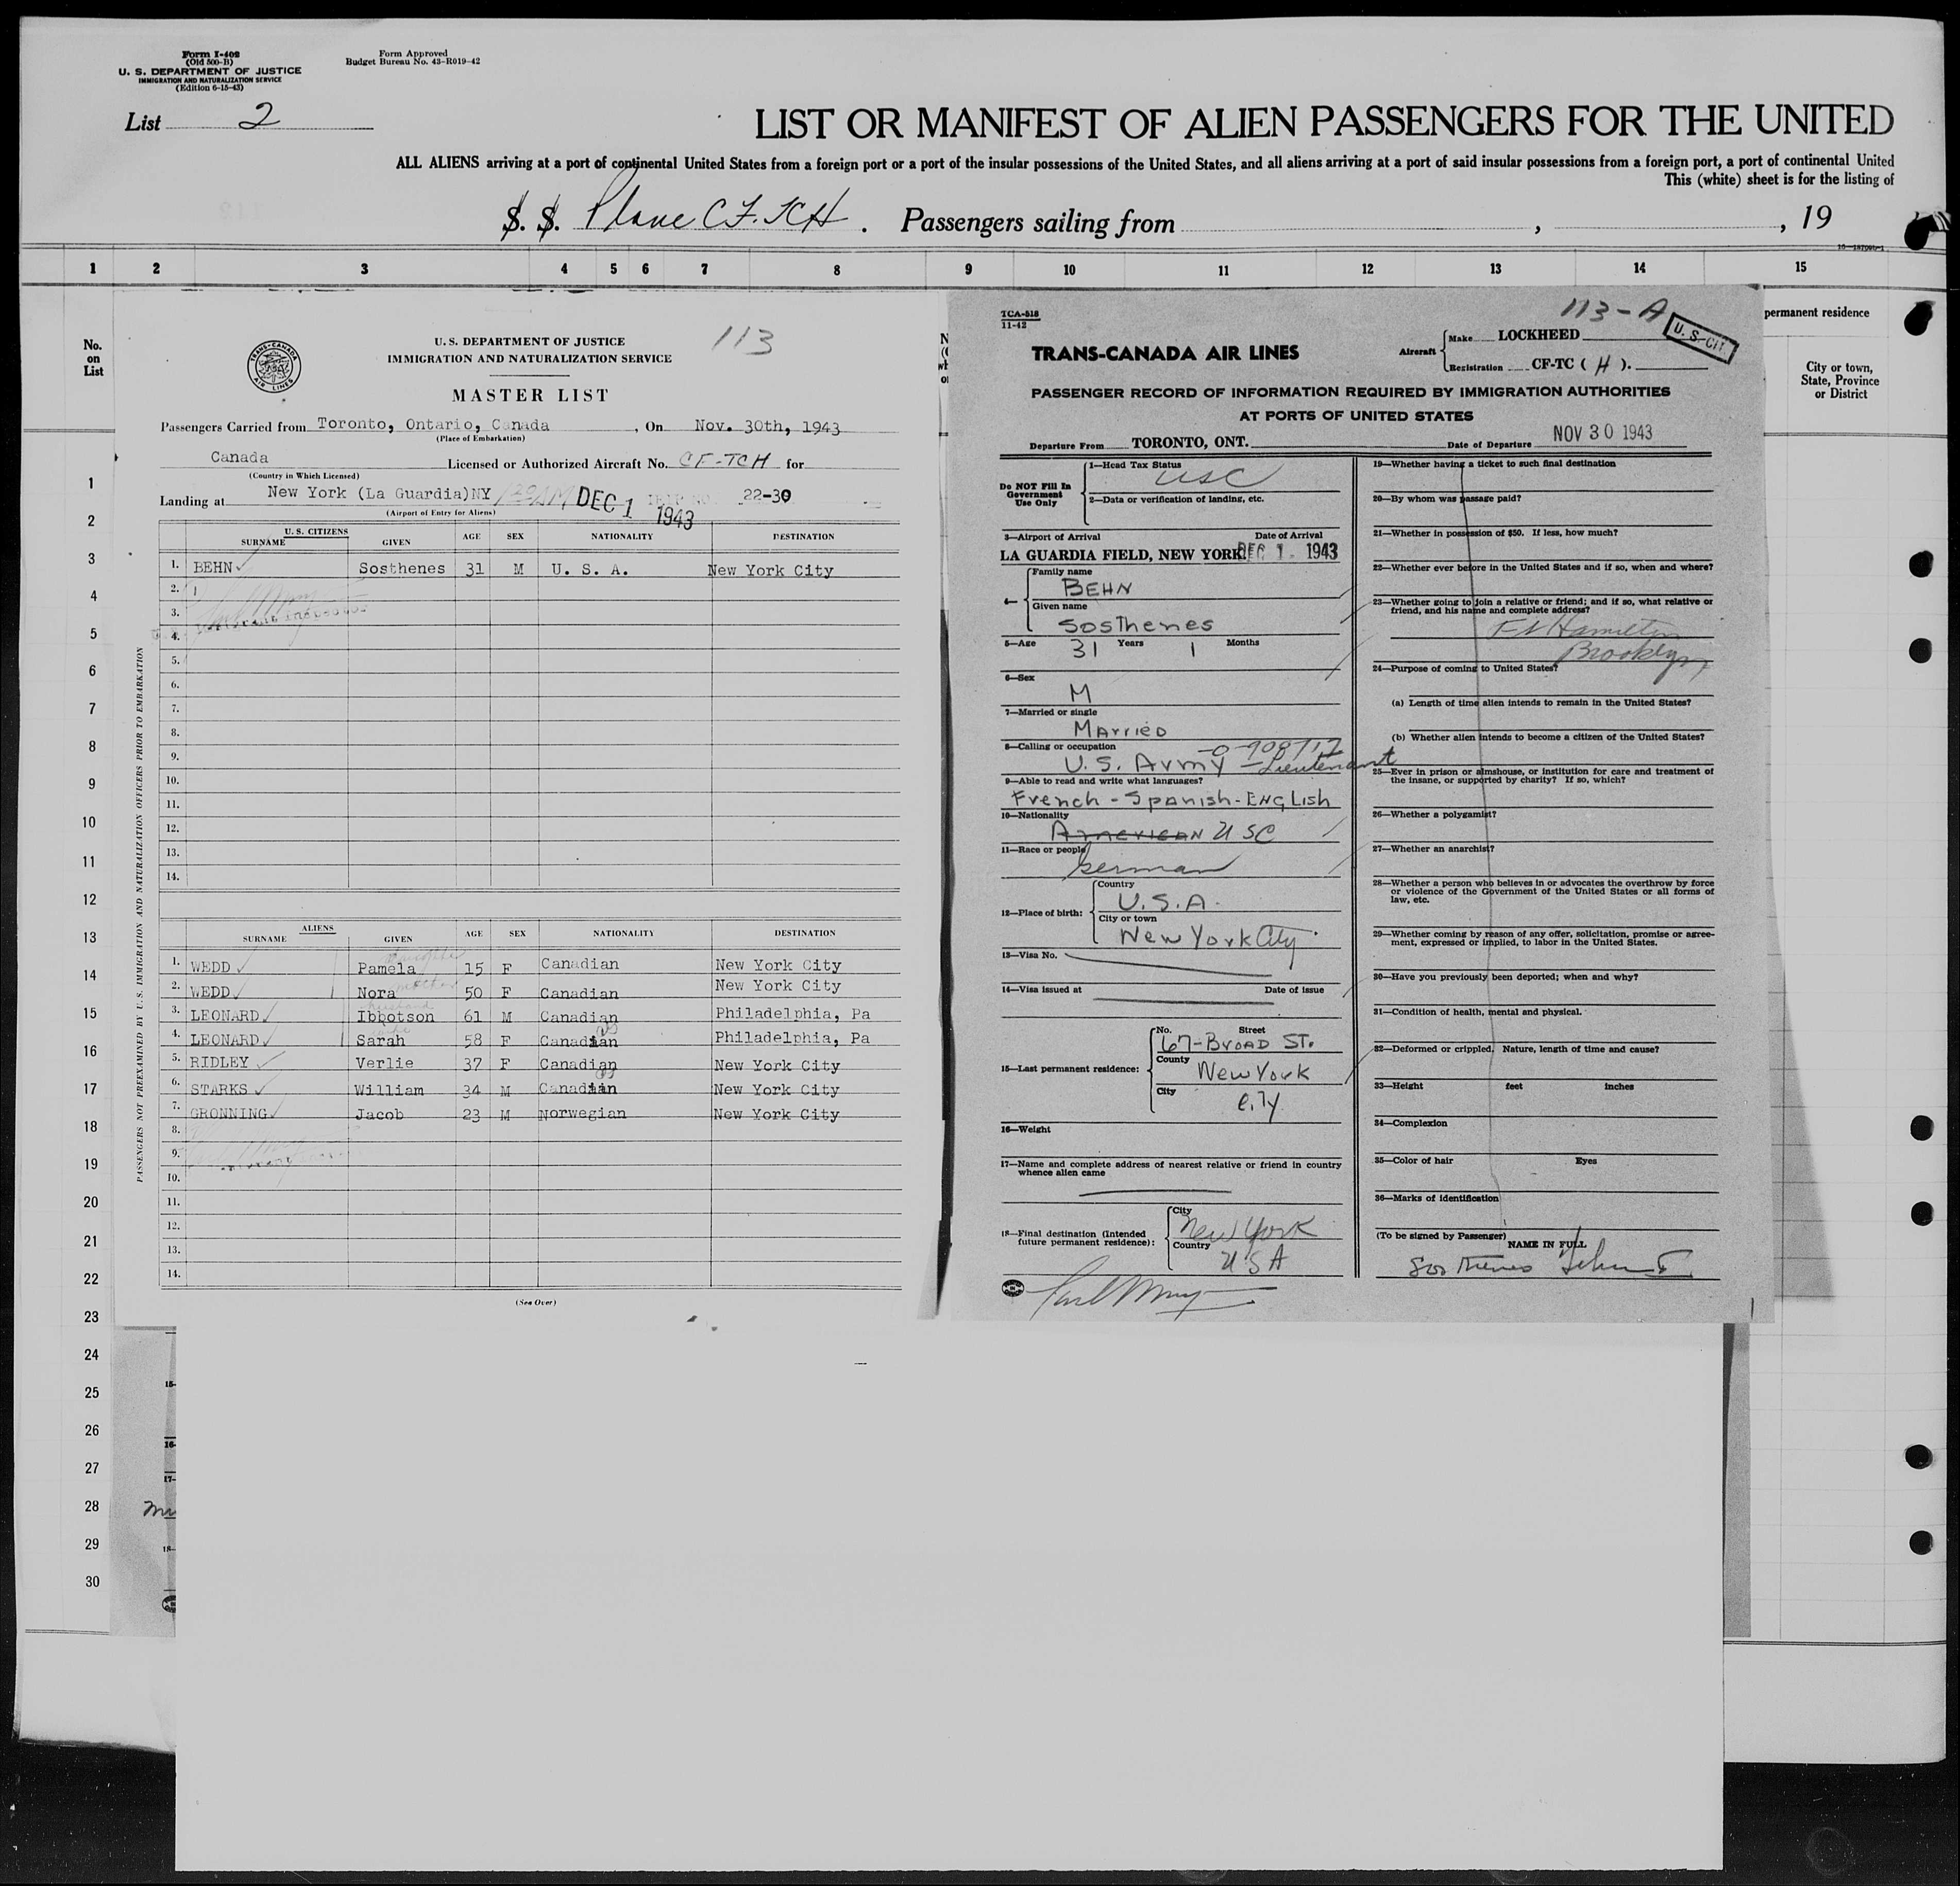 Form I-402
(Old 500-B)
U. S. DEPARTMENT OF JUSTICE
IMMIGRATION AND NATURALIZATION SERVICE
(Edition 6-15-43)
Form Approved
Budget Bureau No. 43-R019-42
List 2
LIST OR MANIFEST OF ALIEN PASSENGERS FOR THE UNITED
ALL ALIENS arriving at a port of continental United States from a foreign port or a port of the insular possessions of the United States, and all aliens arriving at a port of said insular possessions from a foreign port, a port of continental United
This (white) sheet is for the listing of
S. S. Plane CF.TCH . Passengers sailing from , , 19
1 2 3 4 5 6 7 8 9 10 11 12 13 14 15
No.
on
List
1
2
3
4
5
6
7
8
9
10
11
12
13
14
15
16
17
18
19
20
21
22
23
24
25
26
27
28
29
30
permanent residence
City or town,
State, Province
or District
TRANS-CANADA
AIR LINES
113
U. S. DEPARTMENT OF JUSTICE
IMMIGRATION AND NATURALIZATION SERVICE
MASTER LIST
Passengers Carried from Toronto, Ontario, Canada , On Nov. 30th, 1943
(Place of Embarkation)
Canada Licensed or Authorized Aircraft No. CF-TCH for
(Country in Which Licensed)
Landing at New York (La Guardia)NY DEC 1 1943 22-30
(Airport of Entry for Aliens)
U. S. CITIZENS
SURNAME GIVEN AGE SEX NATIONALITY DESTINATION
1. BEHN Sosthenes 31 M U. S. A. New York City
2.
3.
4.
5.
6.
7.
8.
9.
10.
11.
12.
13.
14.
ALIENS
SURNAME GIVEN AGE SEX NATIONALITY DESTINATION
daughter
1. WEDD Pamela 15 F Canadian New York City
2. WEDD Nora mother 50 F Canadian New York City
husband
3. LEONARD Ibbotson 61 M Canadian Philadelphia, Pa
4. LEONARD Sarah 58 F Canadian Philadelphia, Pa
5. RIDLEY Verlie 37 F Canadian New York City
6. STARKS William 34 M Canadian New York City
7. GRONNING Jacob 23 M Norwegian New York City
8.
9.
10.
11.
12.
13.
14.
(See Over)
PASSENGERS NOT PREEXAMINED BY U.S. IMMIGRATION AND NATURALIZATION OFFICERS PRIOR TO EMBARKATION
TCA-518
11-42
113-A
U. S.-CIT.
TRANS-CANADA AIR LINES
Aircraft
Make LOCKHEED
Registration CF-TC ( H ).
PASSENGER RECORD OF INFORMATION REQUIRED BY IMMIGRATION AUTHORITIES
AT PORTS OF UNITED STATES
Departure From TORONTO, ONT. Date of Departure NOV 30 1943
Do NOT Fill In
Government
Use Only
1—Head Tax Status
USC
2—Data or verification of landing, etc.
3—Airport of Arrival Date of Arrival
LA GUARDIA FIELD, NEW YORK DEC 1 - 1943
4—
Family name
BEHN
Given name
Sosthenes
5—Age 31 Years 1 Months
6—Sex
M
7—Married or single
Married
8—Calling or occupation
U.S. Army — Lieutenant
9—Able to read and write what languages?
French - Spanish - English
10—Nationality
American USC
11—Race or people
German
12—Place of birth:
Country
U.S.A.
City or town
New York City
13—Visa No.
14—Visa issued at Date of issue
15—Last permanent residence:
No. Street
67-Broad St.
County
New York
City
City
16—Weight
17—Name and complete address of nearest relative or friend in country
whence alien came
18—Final destination (Intended
future permanent residence):
City
New York
Country
USA
19—Whether having a ticket to such final destination
20—By whom was passage paid?
21—Whether in possession of $50. If less, how much?
22—Whether ever before in the United States and if so, when and where?
23—Whether going to join a relative or friend; and if so, what relative or
friend, and his name and complete address?
Ft Hamilton
Brooklyn
24—Purpose of coming to United States?
(a) Length of time alien intends to remain in the United States?
(b) Whether alien intends to become a citizen of the United States?
25—Ever in prison or almshouse, or institution for care and treatment of
the insane, or supported by charity? If so, which?
26—Whether a polygamist?
27—Whether an anarchist?
28—Whether a person who believes in or advocates the overthrow by force
or violence of the Government of the United States or all forms of
law, etc.
29—Whether coming by reason of any offer, solicitation, promise or agree-
ment, expressed or implied, to labor in the United States.
30—Have you previously been deported; when and why?
31—Condition of health, mental and physical.
32—Deformed or crippled. Nature, length of time and cause?
33—Height feet inches
34—Complexion
35—Color of hair Eyes
36—Marks of identification
(To be signed by Passenger) NAME IN FULL
Sosthenes Behn
15-
16-
17-
18-